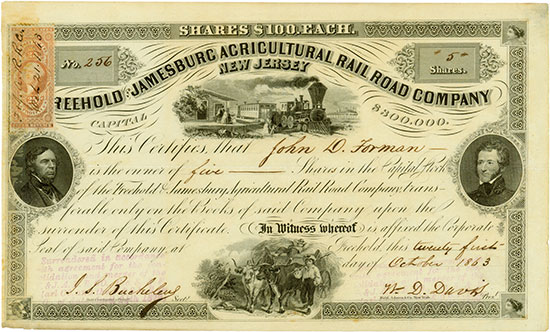 SHARES $100. EACH.
No. 256
5
Shares.
FREEHOLD AND JAMESBURG AGRICULTURAL RAIL ROAD COMPANY
NEW JERSEY
CAPITAL $300.000.
This Certifies, that John D. Forman
is the owner of five Shares in the Capital Stock
of the Freehold & Jamesburg Agricultural Rail Road Company, trans-
ferable only on the Books of said Company upon the
surrender of this Certificate. In Witness whereof is affixed the Corporate
Seal of said Company at Freehold, this twenty first
day of October 1863
Surrendered in
with agreement for the
Sect.
Prest.